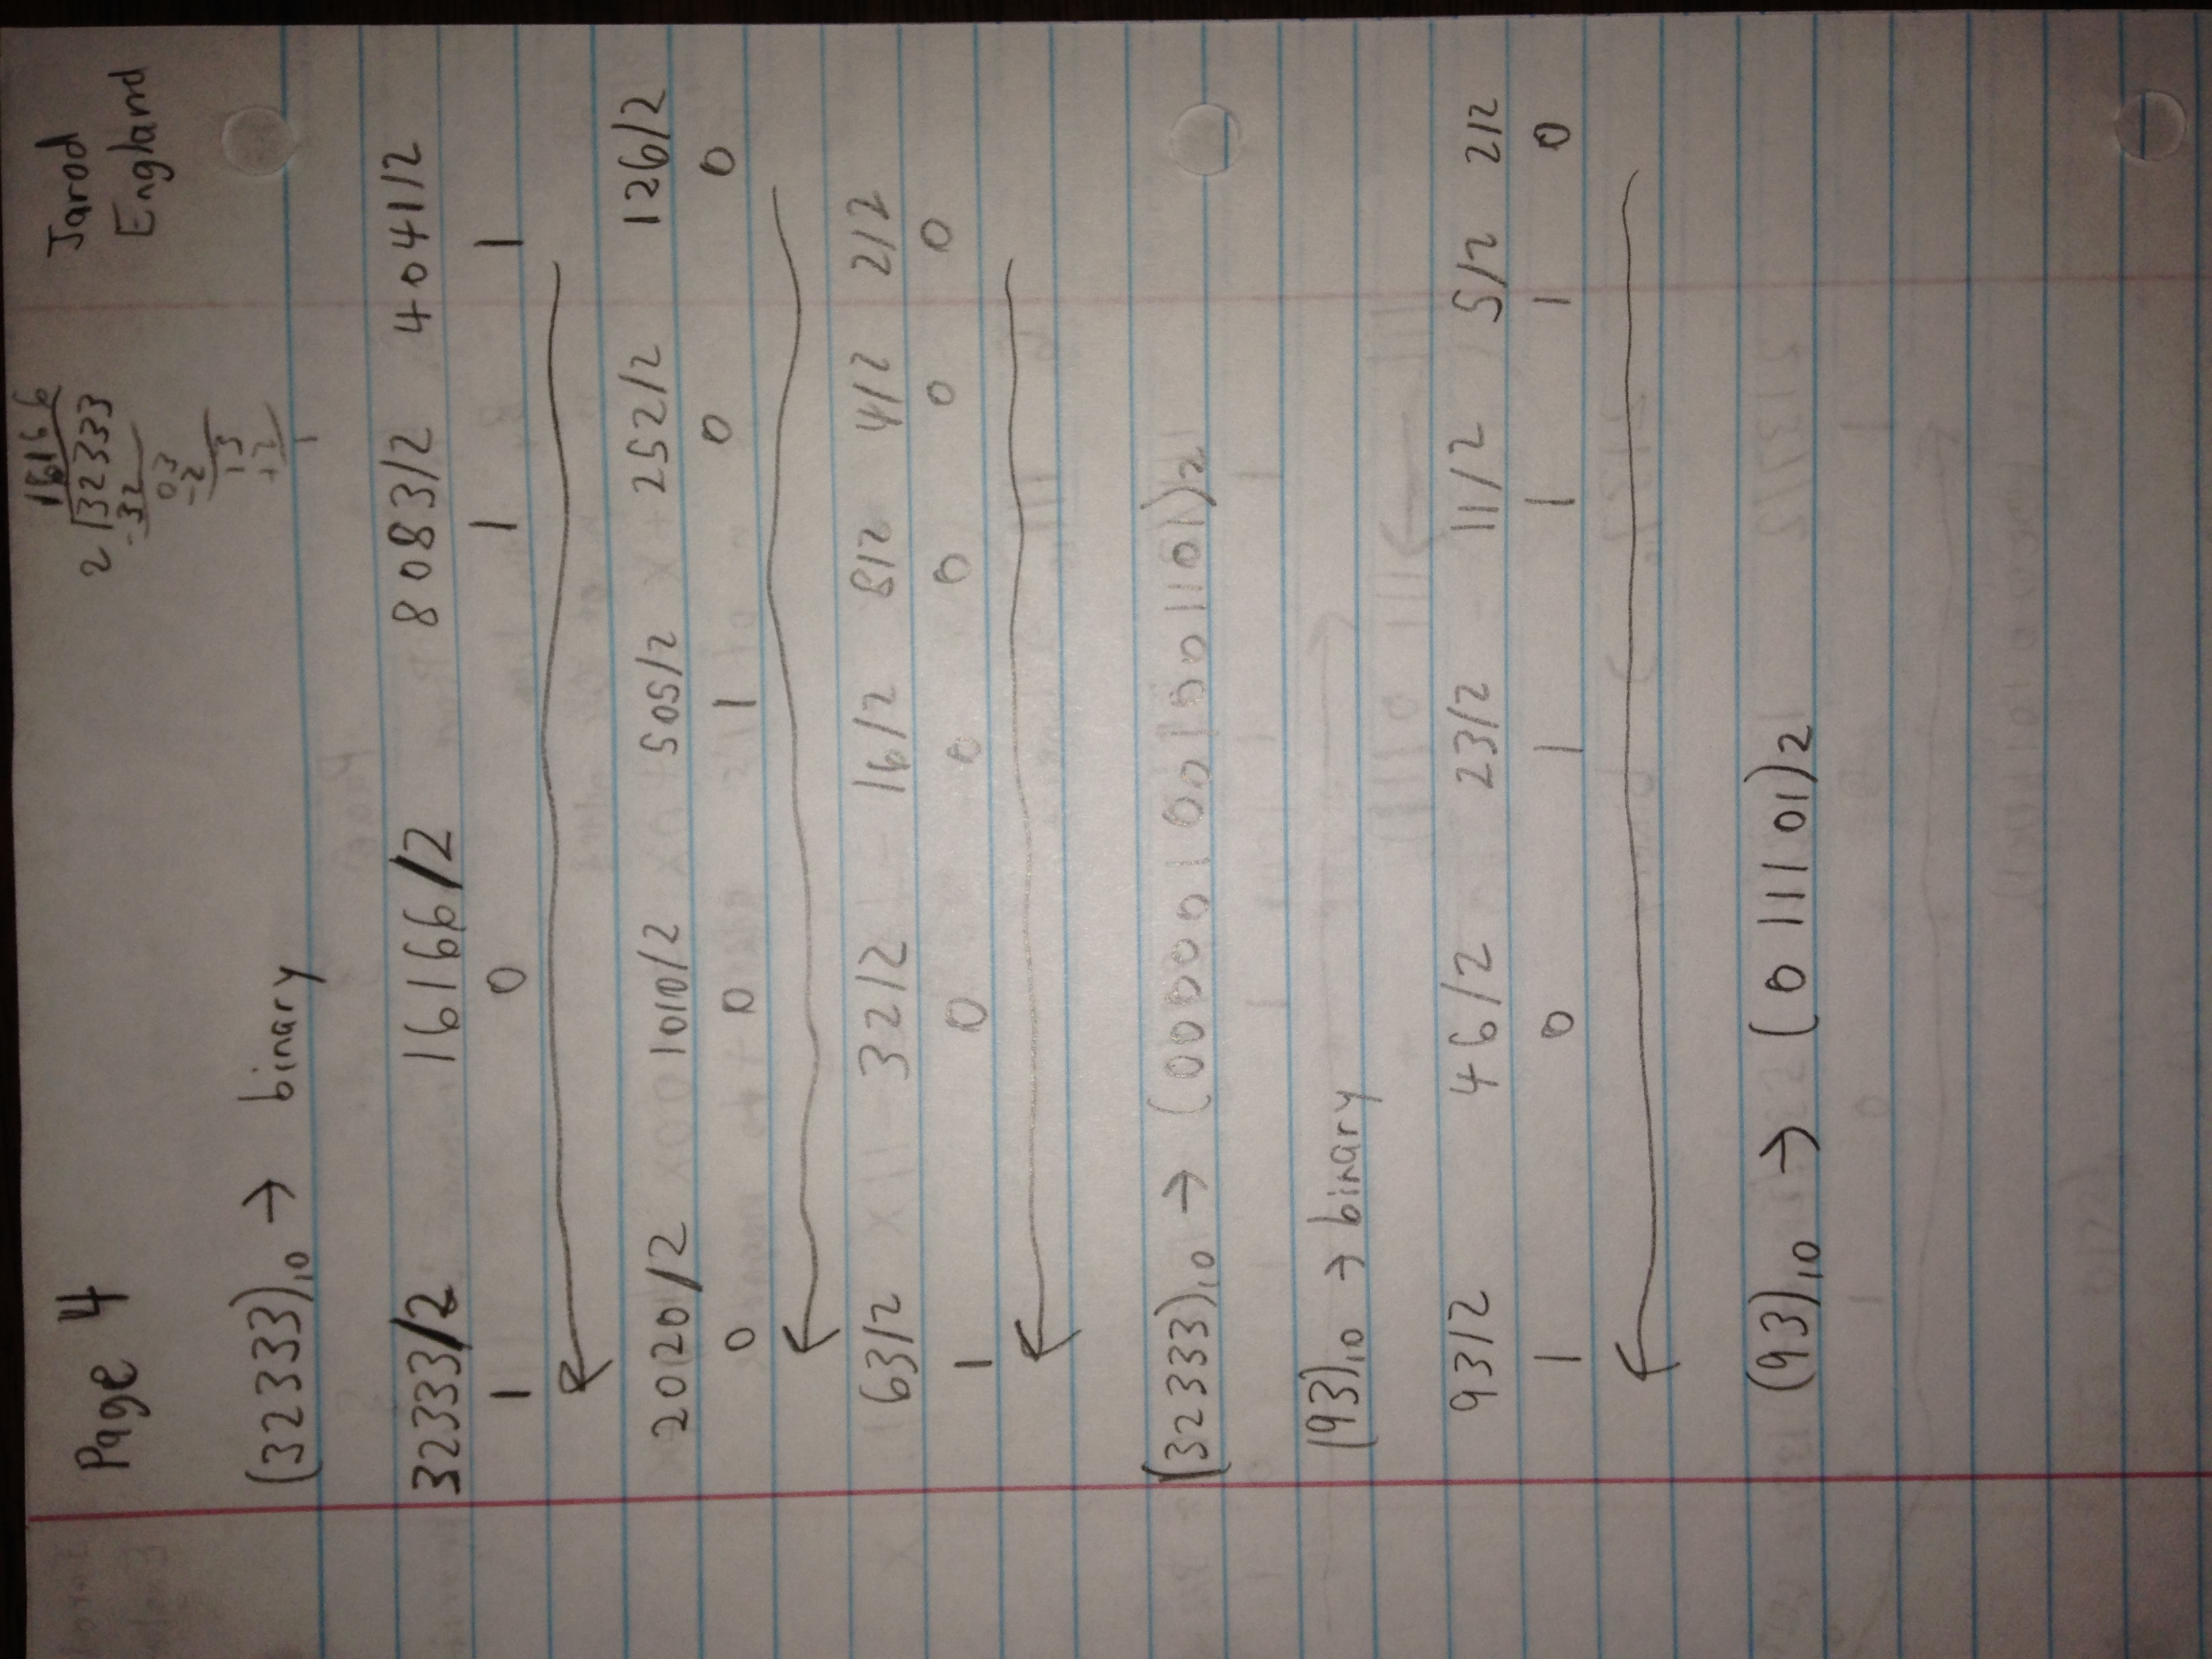 Page 4
Jarod
England
16166
2 32333
-32
03
-2
13
+2
1
(32333)10 → binary
32333/2 16166/2 8083/2 4041/2
1 0 1 1
2020/2 1010/2 505/2 252/2 126/2
0 0 1 0 0
63/2 32/2 16/2 8/2 4/2 2/2
1 0 0 0 0 0
(32333)10 → (000001001001101)2
(93)10 → binary
93/2 46/2 23/2 11/2 5/2 2/2
1 0 1 1 1 0
(93)10 → (011101)2